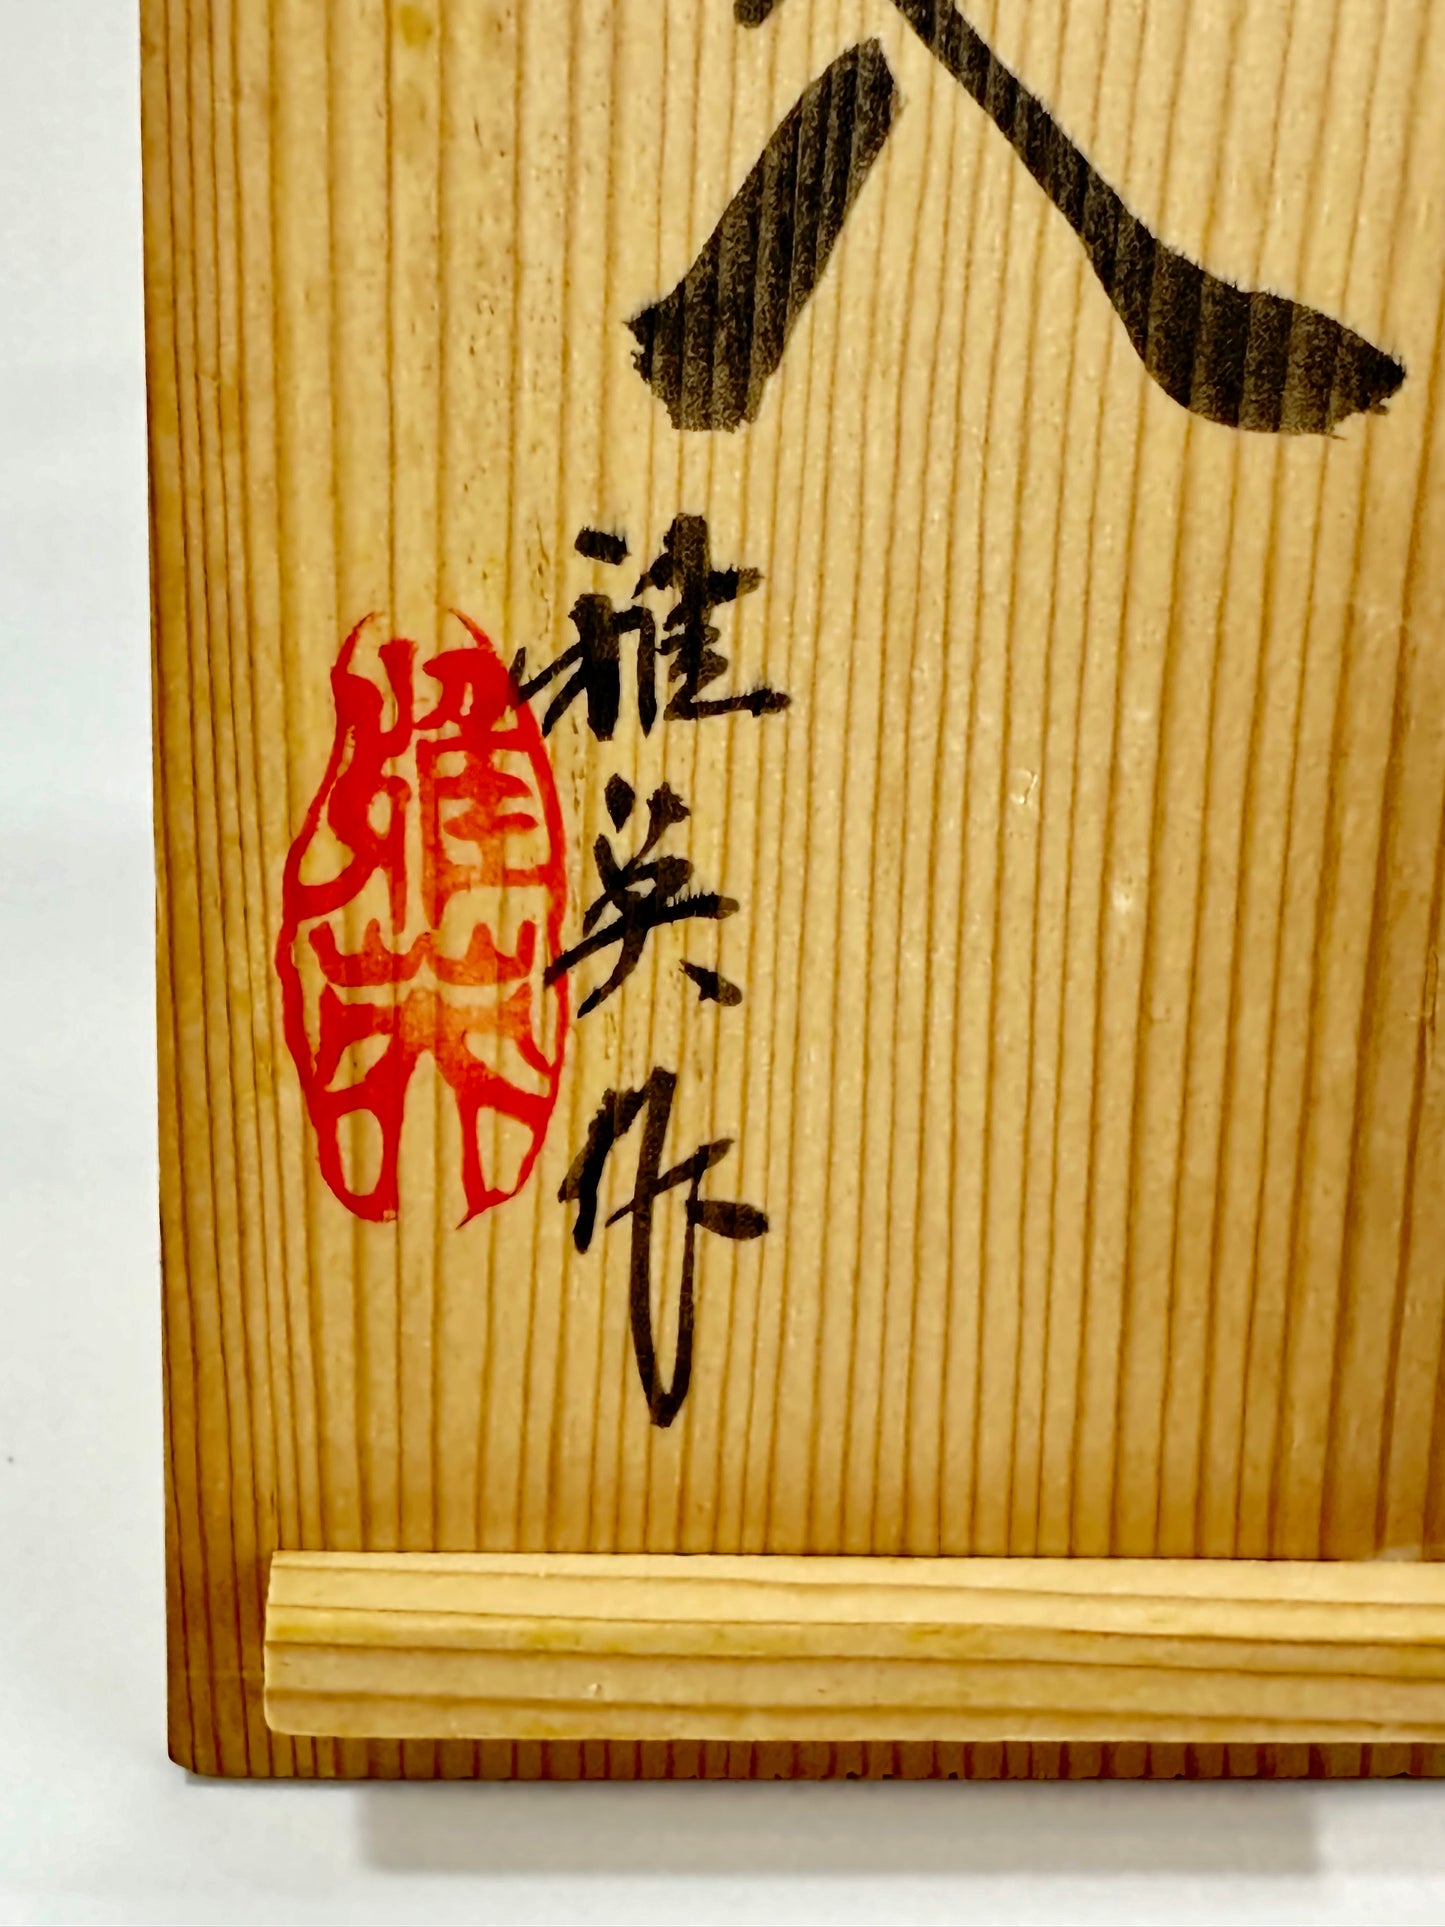 雅英作
雅英